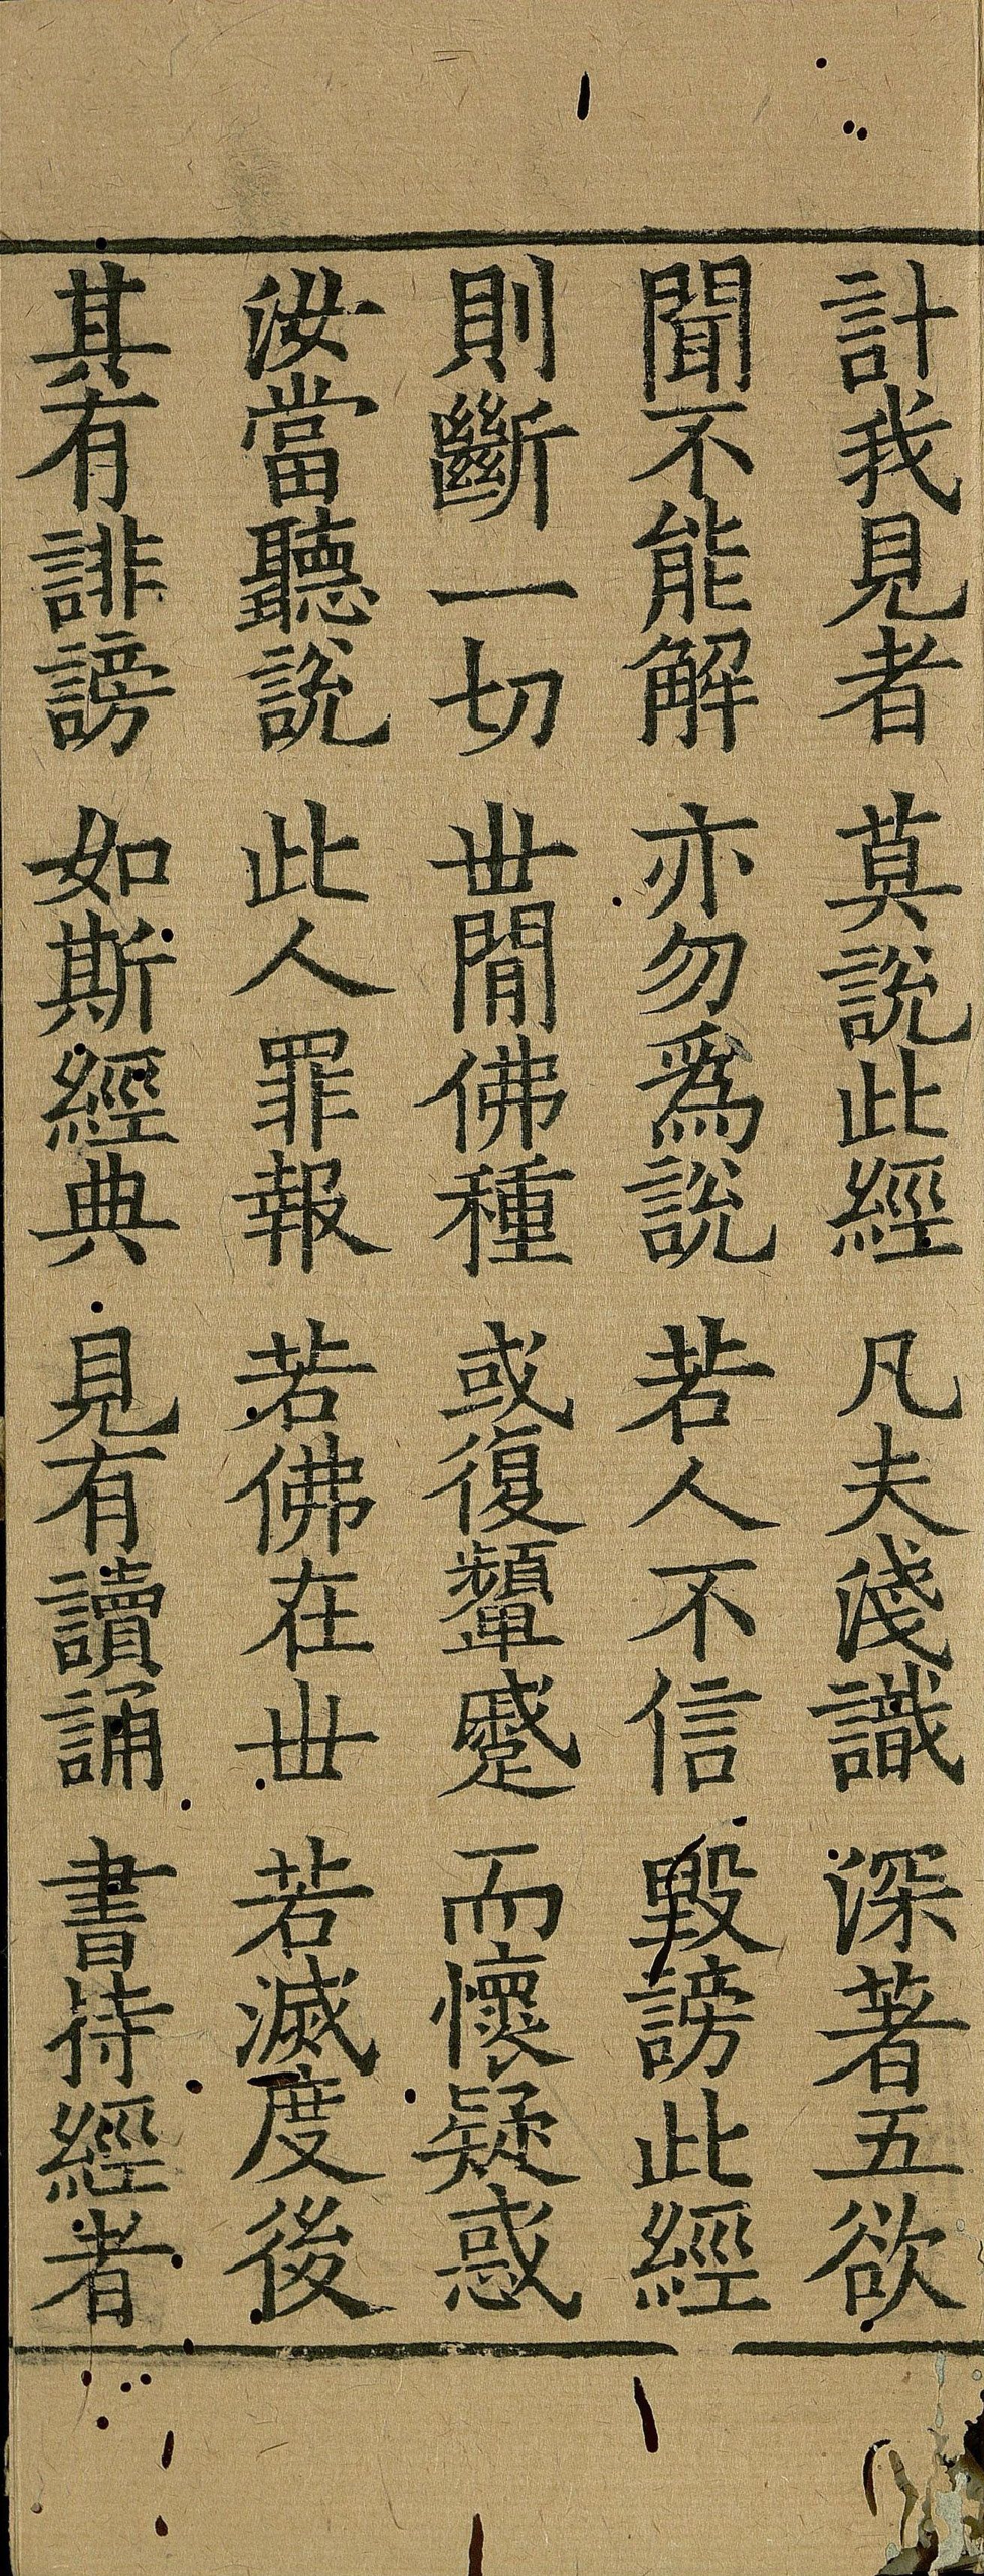 計我見者　莫説此經　凡夫淺識　深著五欲
聞不能解　亦勿爲説　若人不信　毀謗此經
則斷一切　世閒佛種　或復顰蹙　而懷疑惑
汝當聽説　此人罪報　若佛在世　若滅度後
其有誹謗　如斯經典　見有讀誦　書持經者